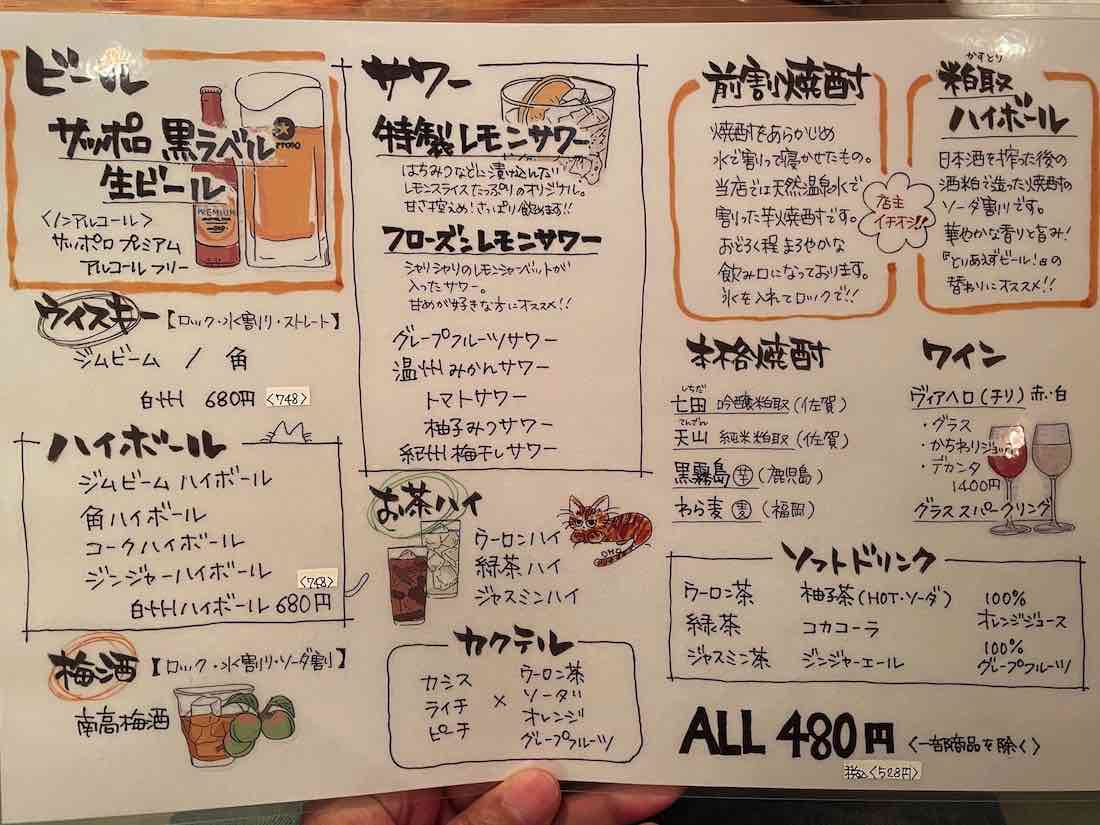 ビール
サッポロ 黒ラベル
生ビール
〈ノンアルコール〉
サッポロ プレミアム
アルコール フリー
PREMIUM
ウイスキー【ロック・水割り・ストレート】
ジムビーム / 角
白州 680円 〈748〉
ハイボール
ジムビーム ハイボール
角ハイボール
コークハイボール
ジンジャーハイボール
〈748〉
白州ハイボール 680円
梅酒【ロック・水割り・ソーダ割】
南高梅酒
サワー
特製レモンサワー
はちみつなどに漬け込んだ
レモンスライスたっぷりのオリジナル。
甘さ控えめ!さっぱり飲めます!!
フローズンレモンサワー
シャリシャリのレモンシャーベットが
入ったサワー。
甘めが好きな方にオススメ!!
グレープフルーツサワー
温州みかんサワー
トマトサワー
柚子みつサワー
紀州梅干しサワー
お茶ハイ
ウーロンハイ
緑茶ハイ
ジャスミンハイ
カクテル
カシス
ライチ
ピーチ
×
ウーロン茶
ソーダ
オレンジ
グレープフルーツ
前割焼酎
焼酎をあらかじめ
水で割って寝かせたもの。
当店では天然温泉水で
割った芋焼酎です。
おどろく程まろやかな
飲み口になっております。
氷を入れてロックで!!
店主
イチオシ!!
かすとり
粕取
ハイボール
日本酒を搾った後の
酒粕で造った焼酎の
ソーダ割りです。
華やかな香りと旨み!
『とりあえずビール!』の
替わりにオススメ!!
本格焼酎
しちだ
七田 吟醸粕取(佐賀)
てんざん
天山 純米粕取(佐賀)
黒霧島 芋(鹿児島)
わら麦 麦(福岡)
ワイン
ヴィアヘロ(チリ)赤・白
・グラス
・かちわりジョッキ
・デカンタ
1400円
グラススパークリング
ソフトドリンク
ウーロン茶
緑茶
ジャスミン茶
柚子茶(HOT・ソーダ)
コカコーラ
ジンジャーエール
100%
オレンジジュース
100%
グレープフルーツ
ALL 480円〈一部商品を除く〉
税込〈528円〉